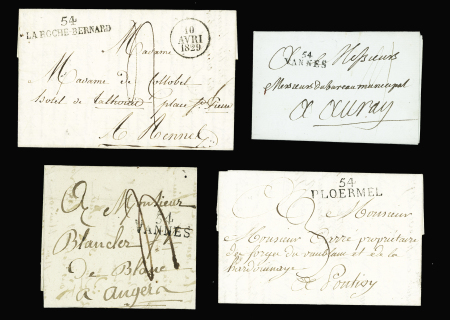 54
LA ROCHE-BERNARD
10
AVRI
1829
Madame
Madame de
hotel de place
A Rennes
54
VANNES
A Messieurs
Messieurs du bureau municipal
a auray
A Monsieur
4
VANNES
Blancler
De Blaue
a Angers
54
PLOERMEL
A Monsieur
Monsieur propriétaire
de forges du et de la
a Pontivy